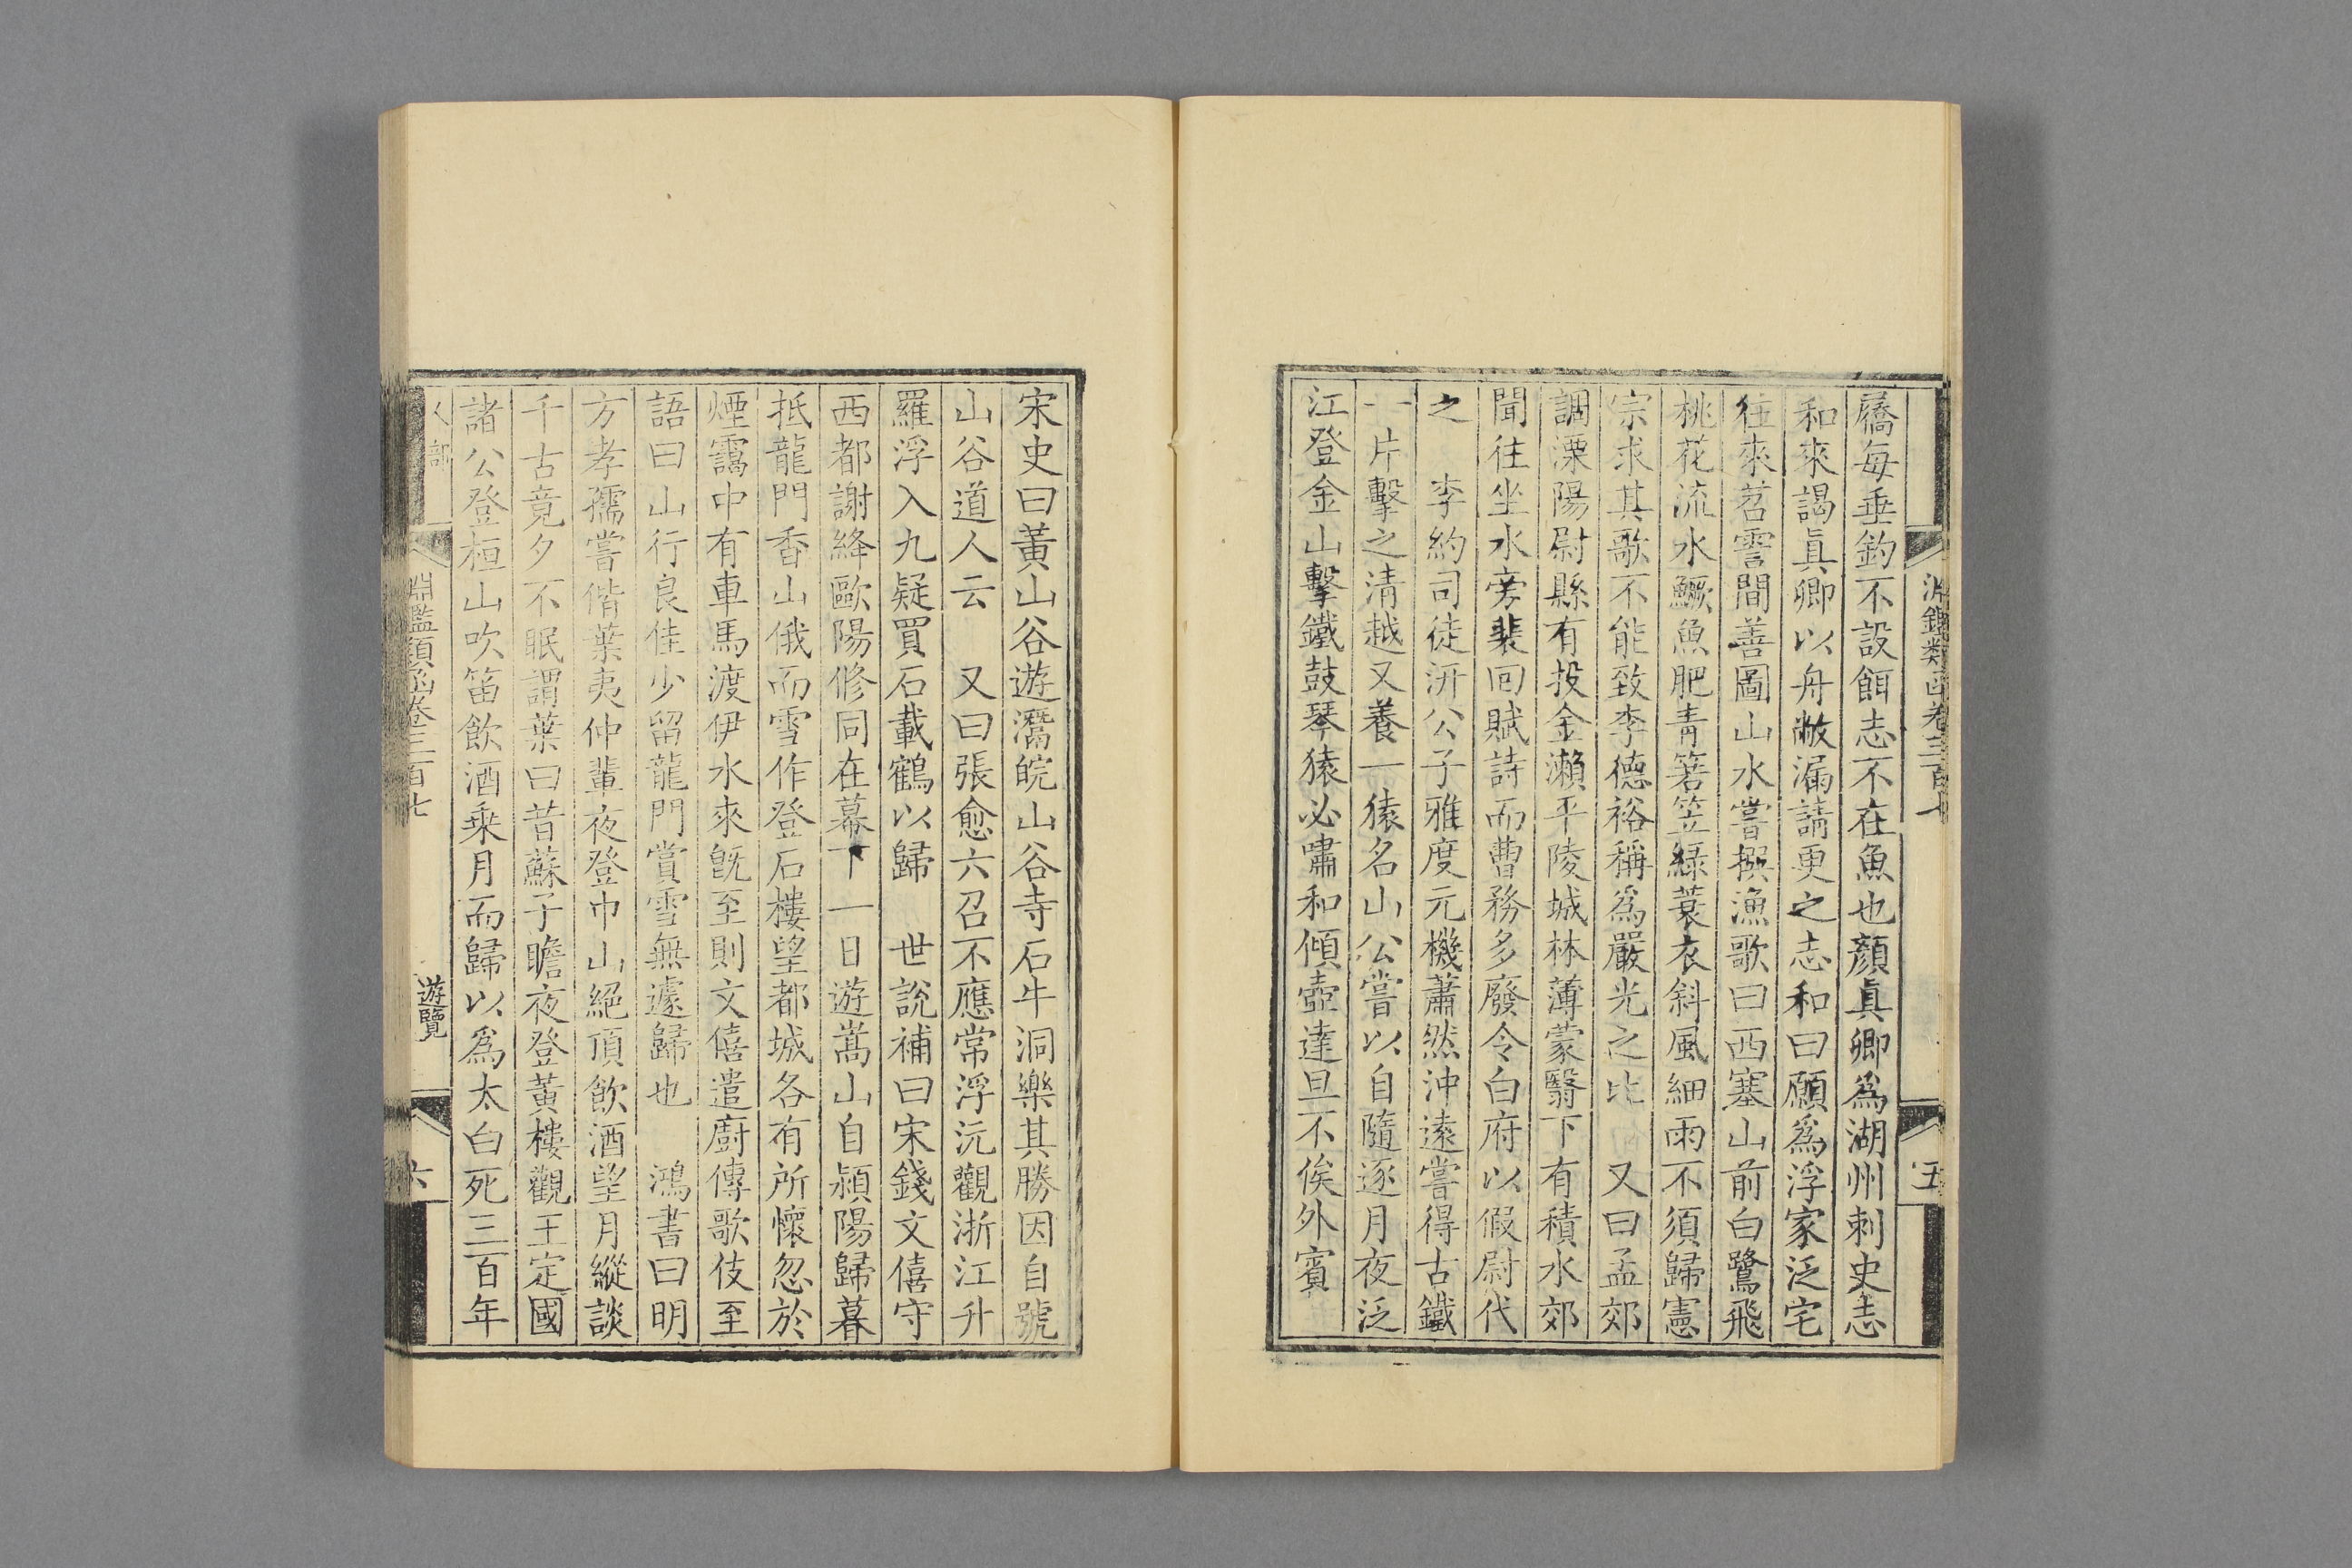 淵鑑類函卷三百七
五
屩每垂釣不設餌志不在魚也顏眞卿爲湖州刺史志
和來謁眞卿以舟敝漏請更之志和曰願爲浮家泛宅
徃來苕霅間善圖山水嘗撰漁歌曰西塞山前白鷺飛
桃花流水鱖魚肥青箬笠綠蓑衣斜風細雨不須歸憲
宗求其歌不能致李德裕稱爲嚴光之比　又曰孟郊
調溧陽尉縣有投金瀨平陵城林薄蒙翳下有積水郊
聞往坐水旁裴回賦詩而曹務多廢令白府以假尉代
之　李約司徒汧公子雅度元機蕭然沖遠嘗得古鐵
一片擊之清越又養一猿名山公嘗以自隨逐月夜泛
江登金山擊鐵鼓琴猿必嘯和傾壺達旦不俟外賓
宋史曰黃山谷遊灊皖山谷寺石牛洞樂其勝因自號
山谷道人云　又曰張愈六召不應常浮沅觀浙江升
羅浮入九疑買石載鶴以歸　世說補曰宋錢文僖守
西都謝絳歐陽修同在幕下一日遊嵩山自潁陽歸暮
抵龍門香山俄而雪作登石樓望都城各有所懷忽於
煙靄中有車馬渡伊水來旣至則文僖遣廚傳歌伎至
語曰山行良佳少留龍門賞雪無遽歸也　鴻書曰明
方孝孺嘗偕葉夷仲輩夜登巾山絕頂飲酒望月縱談
千古竟夕不眠謂葉曰昔蘇子瞻夜登黃樓觀王定國
諸公登桓山吹笛飲酒乘月而歸以爲太白死三百年
人部
淵鑑類函卷三百七
遊覽
六